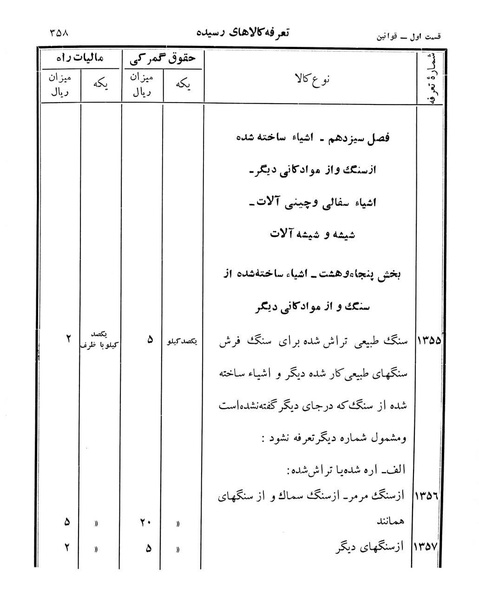 قسمت اول – قوانین
تعرفه کالاهای رسیده
۳۵۸
شمارهٔ تعرفه
نوع کالا
حقوق گمرکی
مالیات راه
یکه
میزان ریال
یکه
میزان ریال
فصل سیزدهم – اشیاء ساخته شده
از سنگ و از موادکانی دیگر–
اشیاء سفالی وچینی آلات–
شیشه و شیشه آلات
بخش پنجاه وهشت – اشیاء ساخته شده از
سنگ و از موادکانی دیگر
۱۳۵۵ سنگ طبیعی تراش شده برای سنگ فرش یکصد کیلو ۵ یکصد کیلو با ظرف ۲
سنگهای طبیعی کار شده دیگر و اشیاء ساخته
شده از سنگ که درجای دیگر گفته نشده است
ومشمول شماره دیگر تعرفه نشود :
الف– اره شده یا تراش شده:
۱۳۵۶ ازسنگ مرمر– ازسنگ سماك و از سنگهای
همانند » ۲۰ » ۵
۱۳۵۷ ازسنگهای دیگر » ۵ » ۲